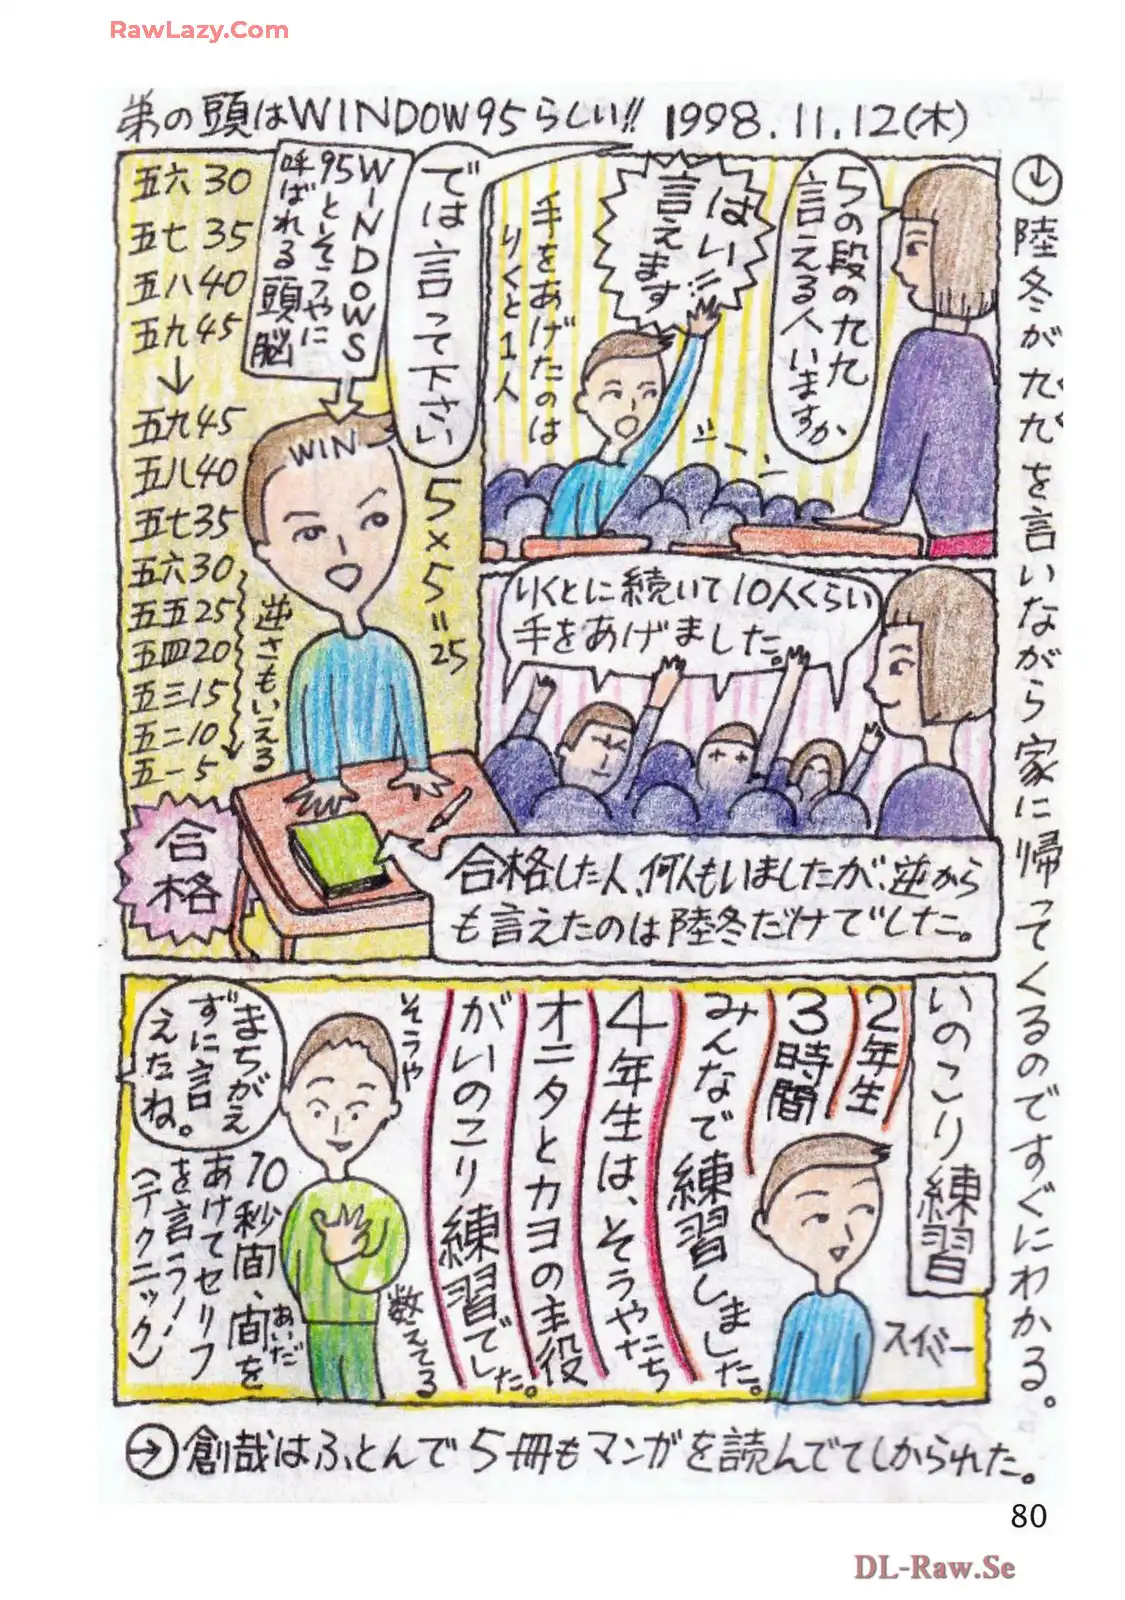 RawLazy.Com
弟の頭はWINDOW95らしい!! 1998.11.12(木)
↓陸冬が九九を言いながら家に帰ってくるのですぐにわかる。
5の段の九九
言える人いますか
はい!!
言えます
手をあげたのは
りくと1人
シーン
では言って下さい
WINDOWS
95とそうやに
呼ばれる頭脳
WIN
5×5=25
五六30
五七35
五八40
五九45
↓
五九45
五八40
五七35
五六30
五五25
五四20
五三15
五二10
五一5
逆さもいえる
合格
りくとに続いて10人くらい
手をあげました。
合格した人、何人もいましたが、逆から
も言えたのは陸冬だけでした。
いのこり練習
2年生
3時間
みんなで練習しました。
4年生は、そうやたち
オニタとカヨの主役
がいのこり練習でした。
スイミー
そうや
まちがえ
ずに言
えたね。
数えてる
10秒間、間を
あいだ
あけてセリフ
を言う!!
(テクニック)
→創哉はふとんで5冊もマンガを読んでてしかられた。
80
DL-Raw.Se